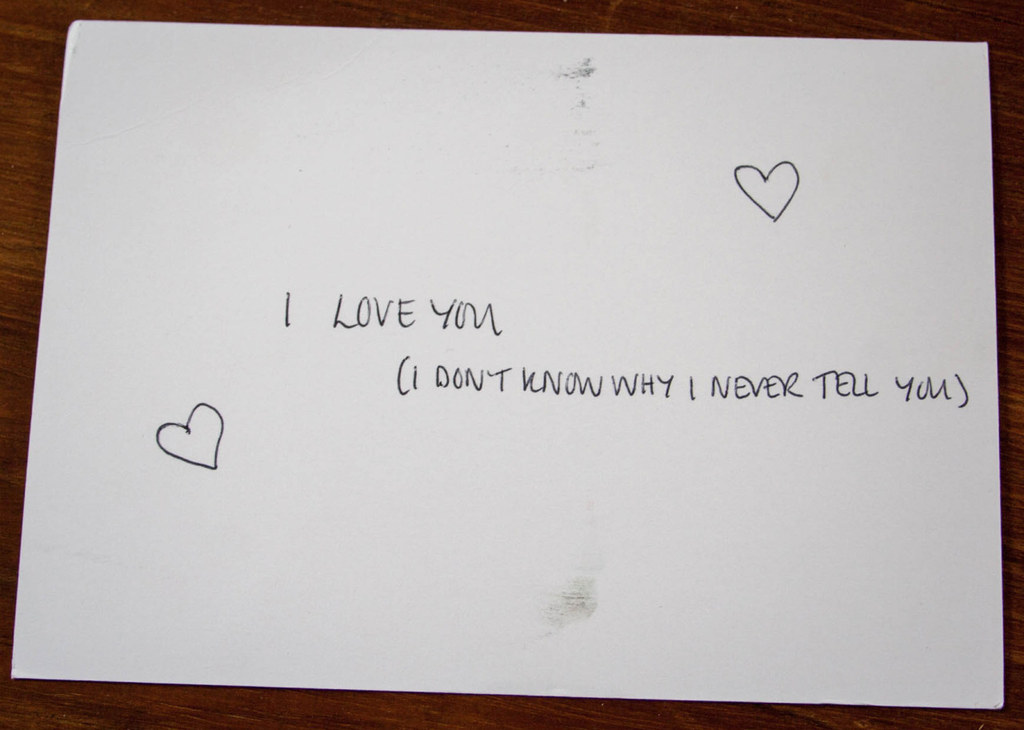 I LOVE YOU
(I DON'T KNOW WHY I NEVER TELL YOU)